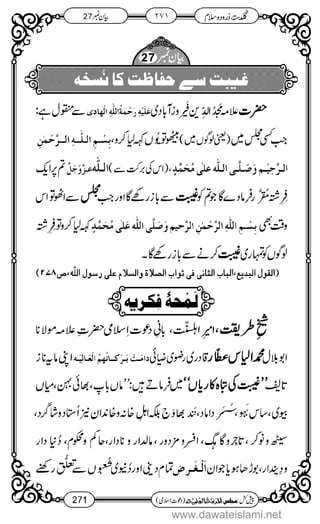 گلدستۂ درود و سلام ۲۷۱ بیان نمبر 27
بیان نمبر 27
غیبت سے حفاظت کا نُسخہ
حضرتِ علامہ مَجْدُالدِّین فیروزآبادی عَلَیْہِ رَحْمَۃُ اللّٰہِ الْہَادِی سے منقول ہے:
جب کسی مجلس میں (یعنی لوگوں میں) بیٹھو تو یوں کہہ لیا کرو، بِسْمِ اللّٰہِ الرَّحْمٰنِ
الرَّحِیْمِ وَصَلَّی اللّٰہُ عَلٰی مُحَمَّدٍ، (اس کی برکت سے) اللّٰہ عَزَّوَجَلَّ تم پر ایک
فِرِشتہ مقرَّر فرمادے گا جو تم کو غیبت سے باز رکھے گا اور جب مجلس سے اٹھو تو اس
وقت بھی بِسْمِ اللّٰہِ الرَّحْمٰنِ الرَّحِیْمِ وَصَلَّی اللّٰہُ عَلٰی مُحَمَّدٍ کہہ لیا کرو تو فِرِشتہ
لوگوں کو تمہاری غیبت کرنے سے باز رکھے گا۔
(القول البدیع، الباب الثانی فی ثواب الصلاۃ والسلام علی رسول اللّٰہ، ص۲۷۸)
لَمْحَۂ فکریہ
شیخِ طریقت، امیرِ اہلسنّت، بانیِ دعوتِ اسلامی حضرتِ علامہ مولانا
ابو بلال محمد الیاس عطار قادری رضوی ضیائی دَامَتْ بَرَکَاتُہُمُ الْعَالِیَہ اپنی مایہ ناز
تالیف ”غیبت کی تباہ کاریاں“ میں فرماتے ہیں: ”ماں باپ، بھائی بہن، میاں
بیوی، ساس بہو، سُسَر داماد، نند بھاوج بلکہ اہلِ خانہ و خاندان نیز استاد و شاگرد،
سیٹھ و نوکر، تاجر و گاہک، افسر و مزدور، مالدار و نادار، حاکم و محکوم، دنیا دار
و دیندار، بوڑھا ہو یا جوان الغرض تمام دینی اور دُنیوی شعبوں سے تعلُّق رکھنے
271
www.dawateislami.net